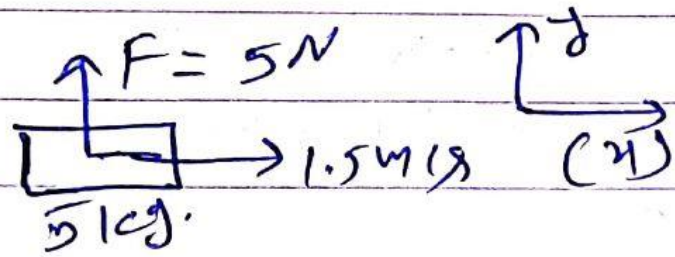 F = 5N
y
1.5 m/s
(x)
5 kg.